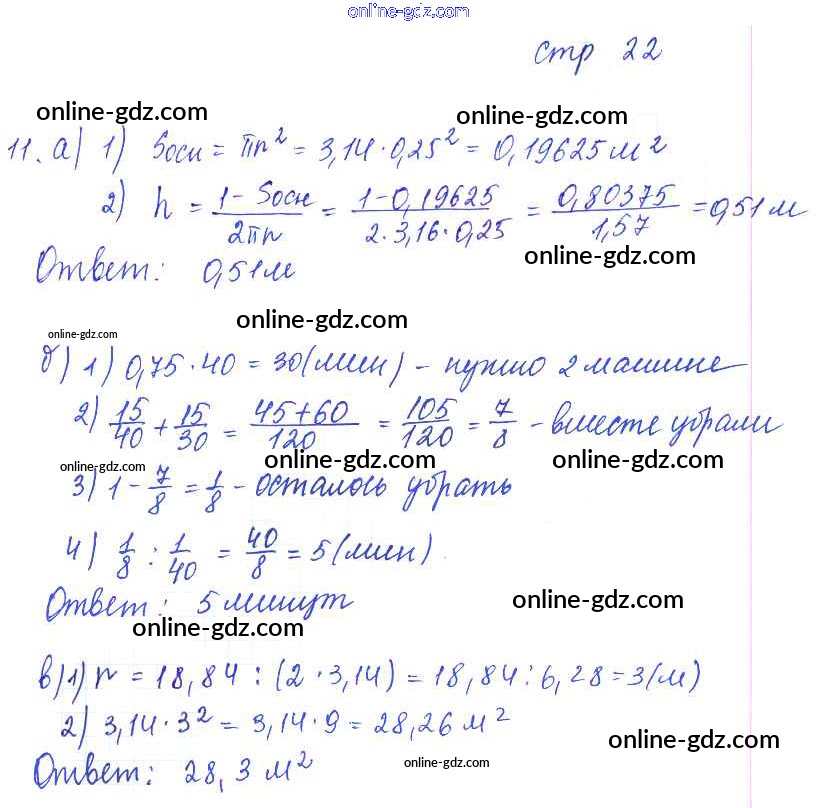 online-gdz.com
стр 22
online-gdz.com online-gdz.com
11. а) 1) Sосн = πr² = 3,14 · 0,25² = 0,19625 м²
2) h = (1 - Sосн)/(2πr) = (1 - 0,19625)/(2 · 3,16 · 0,25) = 0,80375/1,57 = 0,51 м
online-gdz.com
Ответ: 0,51 м
online-gdz.com
online-gdz.com
б) 1) 0,75 · 40 = 30 (мин) - нужно 2 машине
2) 15/40 + 15/30 = (45 + 60)/120 = 105/120 = 7/8 - вместе убрали
online-gdz.com online-gdz.com online-gdz.com
3) 1 - 7/8 = 1/8 - осталось убрать
4) 1/8 : 1/40 = 40/8 = 5 (мин)
Ответ: 5 минут
online-gdz.com
online-gdz.com
в) 1) r = 18,84 : (2 · 3,14) = 18,84 : 6,28 = 3 (м)
2) 3,14 · 3² = 3,14 · 9 = 28,26 м²
online-gdz.com
Ответ: 28,3 м²
online-gdz.com